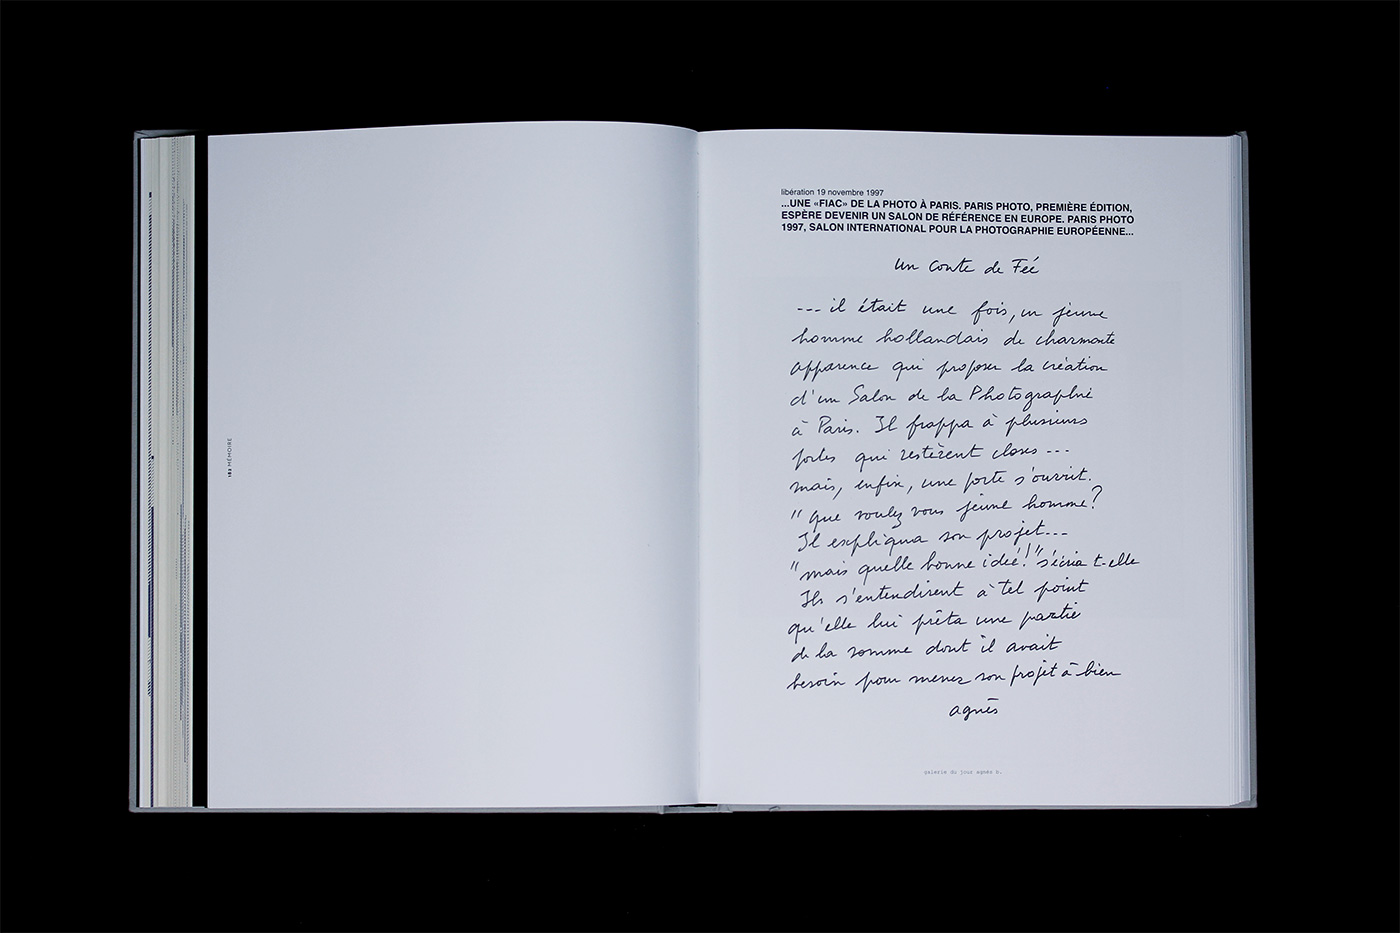 182 MÉMOIRE
libération 19 novembre 1997
...UNE «FIAC» DE LA PHOTO À PARIS. PARIS PHOTO, PREMIÈRE ÉDITION,
ESPÈRE DEVENIR UN SALON DE RÉFÉRENCE EN EUROPE. PARIS PHOTO
1997, SALON INTERNATIONAL POUR LA PHOTOGRAPHIE EUROPÉENNE...
un conte de Feé
--- il était une fois, un jeune
homme hollandais de charmante
apparence qui proposa la création
d'un Salon de la Photographie
à Paris. Il frappa à plusieurs
portes qui restèrent closes ---
mais, enfin, une porte s'ouvrit.
"que voulez vous jeune homme?
Il expliqua son projet---
"mais quelle bonne ideé!" s'écria t-elle
Ils s'entendirent à tel point
qu'elle lui prêta une partie
de la somme dont il avait
besoin pour mener son projet à bien
agnès
galerie du jour agnès b.